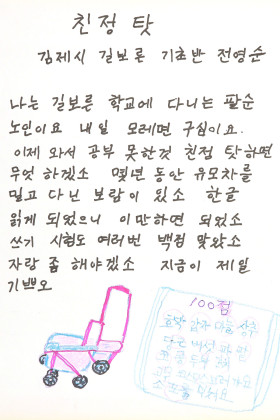 친정 탓
김제시 길보른 기초반 전영순
나는 길보른 학교에 다니는 팔순
노인이요 내 일 모레면 구십이요.
이제 와서 공부 못한것 친정 탓하면
무엇 하겠소 몇년 동안 유모차를
밀고 다닌 보람이 있소 한글
읽게 되었으니 이만하면 되었소
쓰기 시험도 여러번 백점 맞았소
자랑 좀 해야겠소 지금이 제일
기쁘오
100점
마늘 상추
당근 버섯